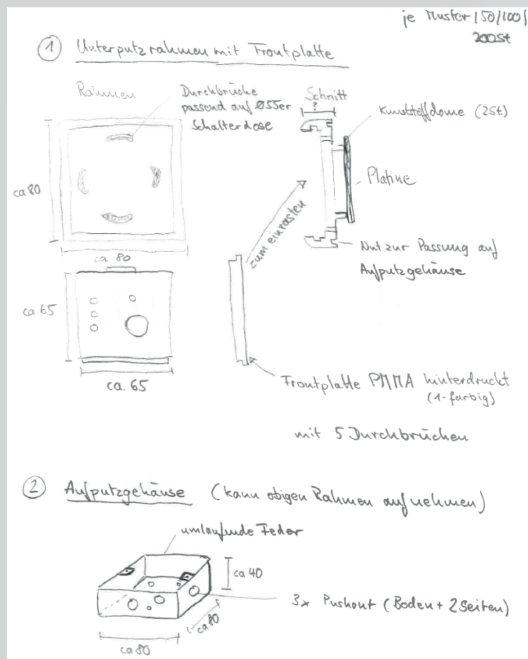 je Muster / 50/100/
200St
① Unterputzrahmen mit Frontplatte
Rahmen
Durchbrüche
passend auf Ø55er
Schalterdose
Schnitt
?
Kunststoffdome (2St)
Platine
ca 80
ca. 80
zum einrasten
Nut zur Passung auf
Aufputzgehäuse
ca 65
ca. 65
Frontplatte PMMA hinterdruckt
(1-farbig)
mit 5 Durchbrüchen
② Aufputzgehäuse (kann obigen Rahmen aufnehmen)
umlaufende Feder
ca 40
3x Pushout (Boden + 2 Seiten)
ca 80
ca 80